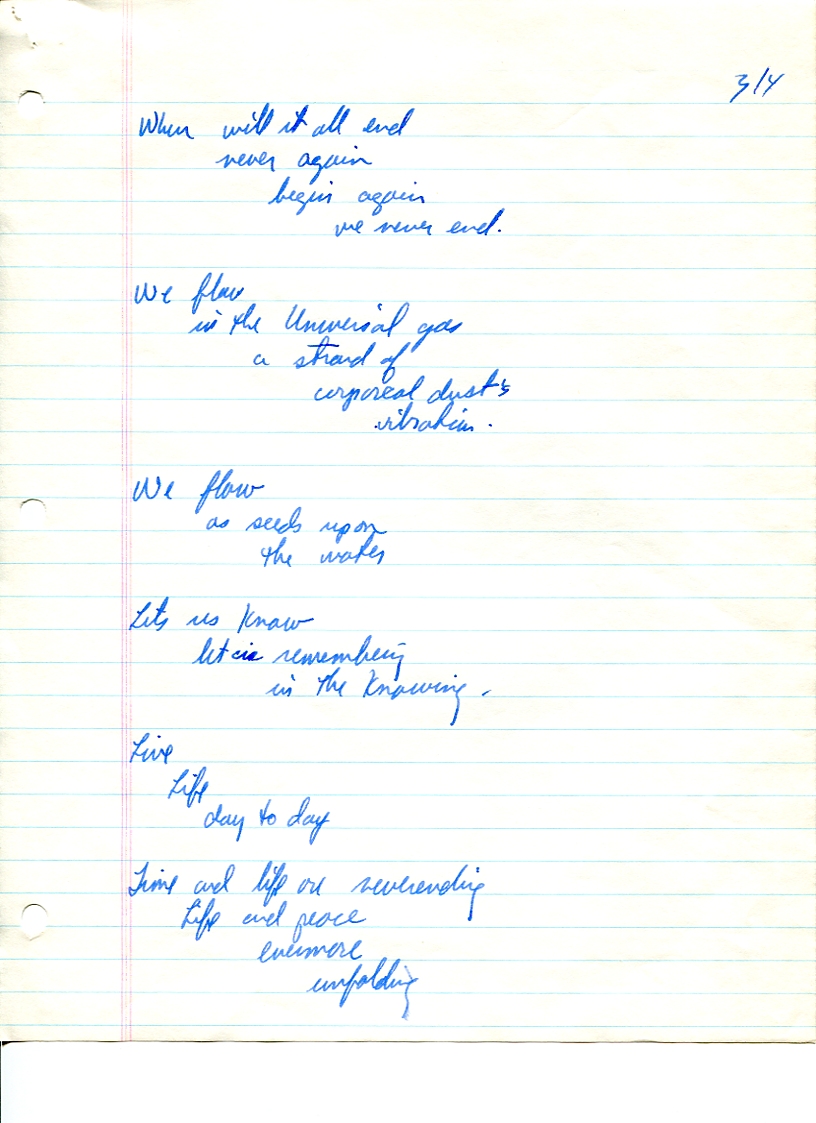 3/4
When will it all end
never again
begin again
we never end.
We flow
in the Universal gas
a strand of
corporeal dust's
vibration.
We flow
as seeds upon
the water
Lets us Know
let us remembering
in the Knowing.
Live
Life
day to day
Time and life are neverending
Life and peace
evermore
unfolding